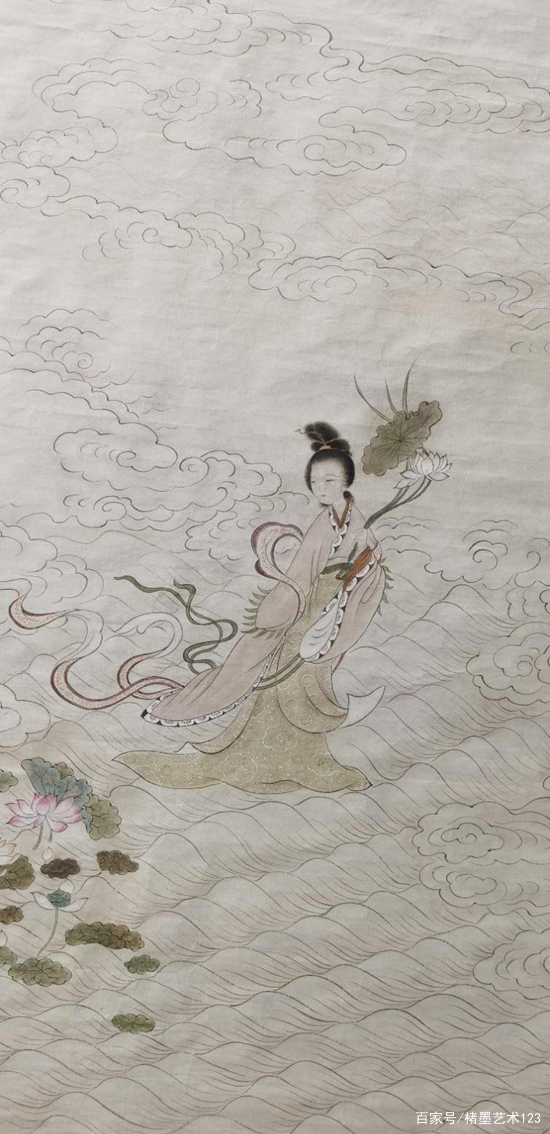 百家号/楮墨艺术123